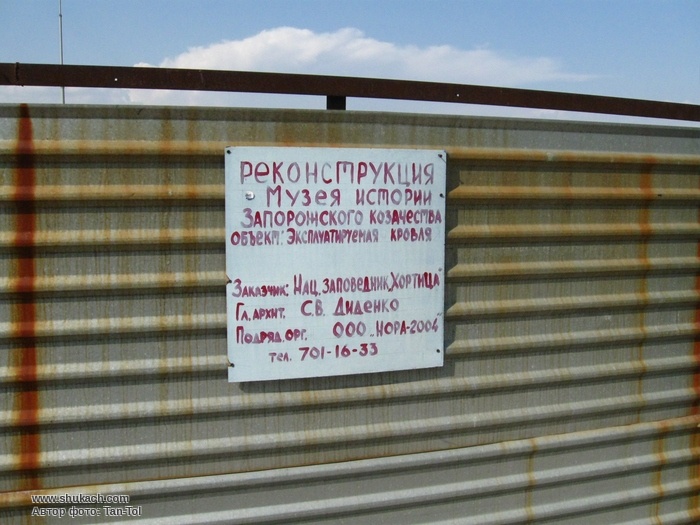 РЕКОНСТРУКЦИЯ
МУЗЕЯ ИСТОРИИ
ЗАПОРОЖСКОГО КОЗАЧЕСТВА
ОБЪЕКТ: ЭКСПЛУАТИРУЕМАЯ КРОВЛЯ
ЗАКАЗЧИК: НАЦ. ЗАПОВЕДНИК „ХОРТИЦА"
ГЛ. АРХИТ. С.В. ДИДЕНКО
ПОДРЯД. ОРГ. ООО „НОРА-2004"
ТЕЛ. 701-16-33
www.shukach.com
Автор фото: Tan-Tol